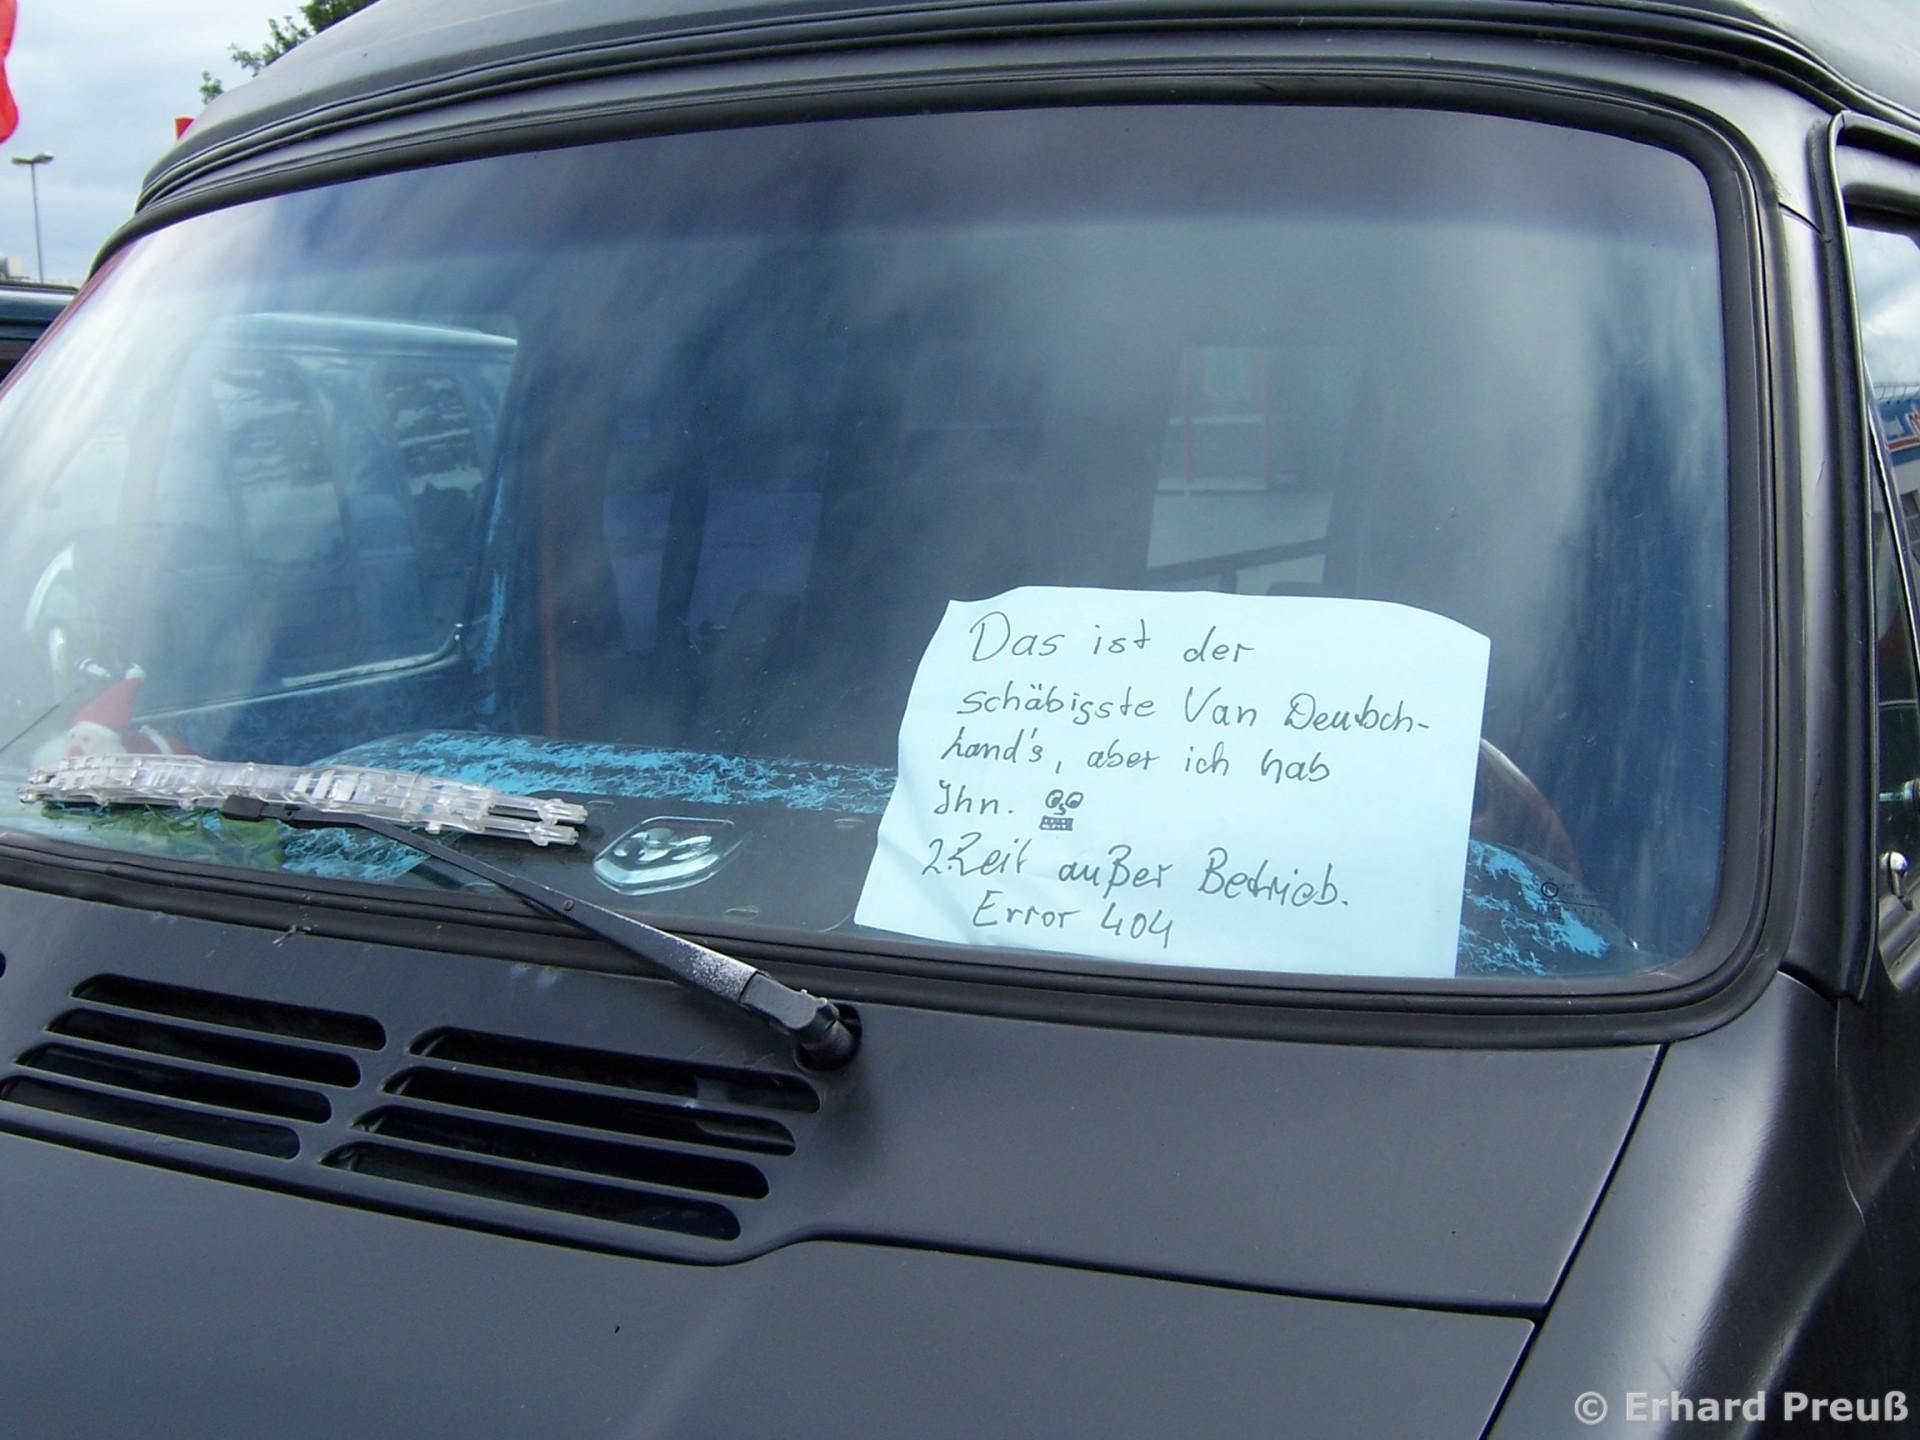 Das ist der
schäbigste Van Deutsch-
land's, aber ich hab
Ihn.
z.Zeit außer Betrieb.
Error 404
© Erhard Preuß